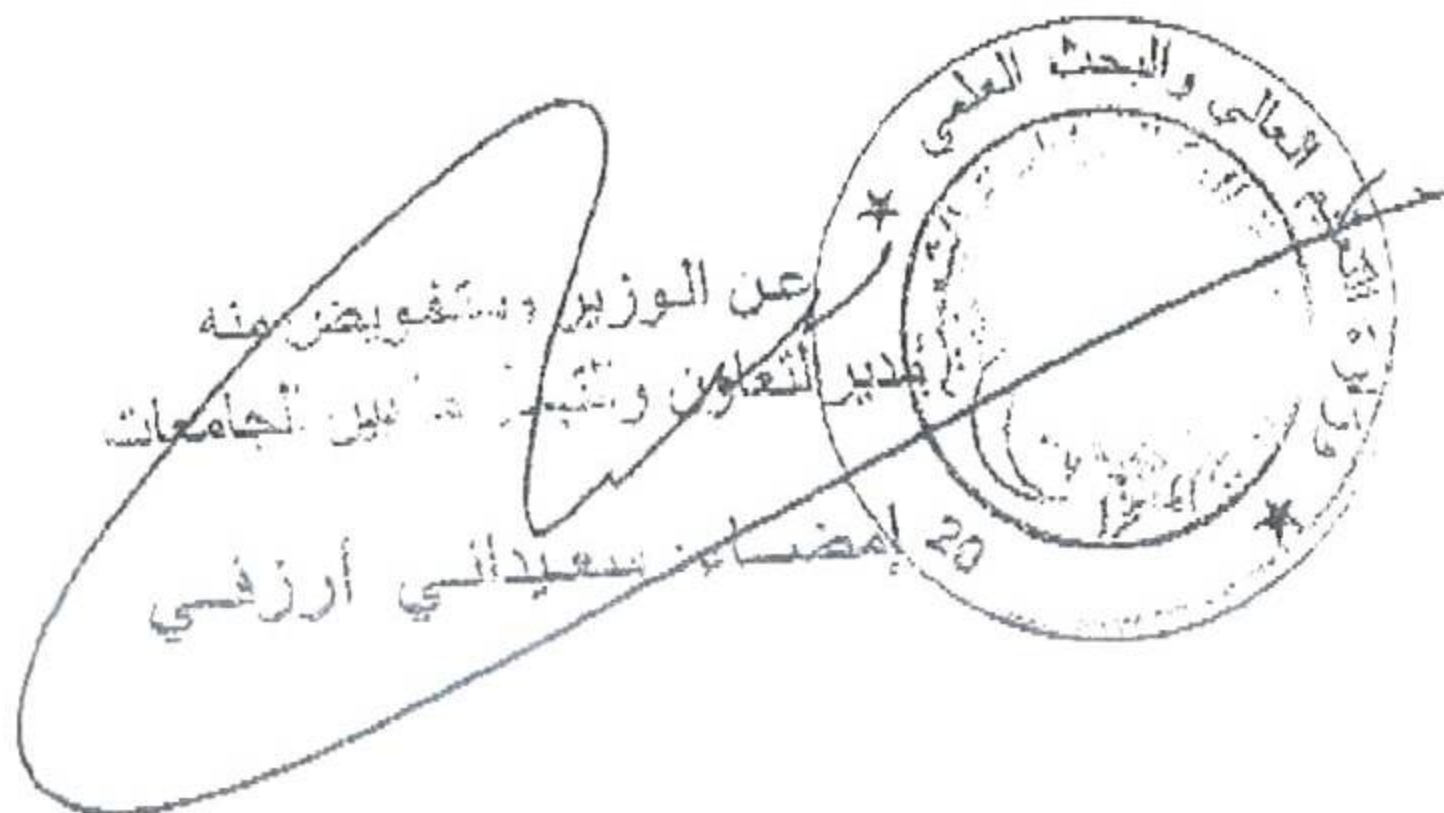 العالي والبحث العلمي
عن الوزير وبتفويض منه
مدير التعاون والتبادل بين الجامعات
20 إمضاء: سعيداني أرزقي